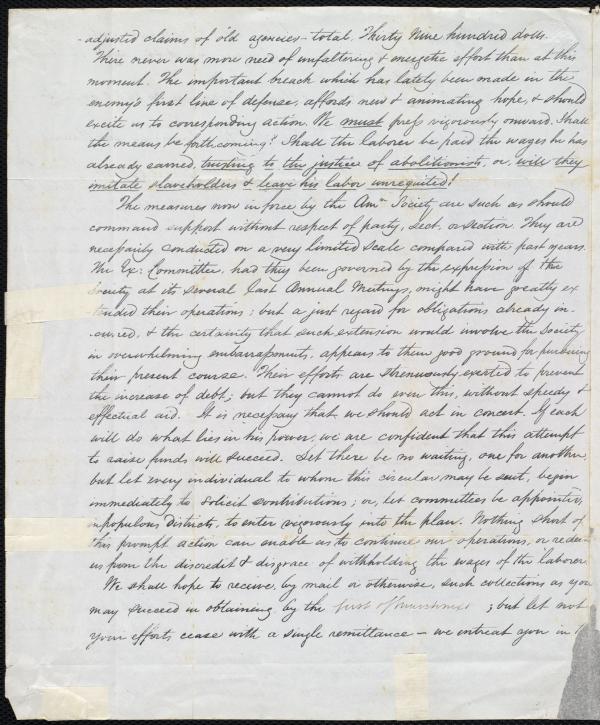 -adjusted claims of old agencies - total, Thirty Nine hundred dolls.
There never was more need of unfaltering & energetic effort than at this
moment. The important breach which has lately been made in the
enemy's first line of defense, affords new & animating hope, & should
excite us to corresponding action. We must press vigorously onward. Shall
the means be forthcoming? Shall the laborer be paid the wages he has
already earned, trusting to the justice of abolitionists, or will they
imitate slaveholders & leave his labor unrequited!
The measures now in force by the Amn Society are such as should
command support without respect of party, sect, or section. They are
necessarily conducted on a very limited scale compared with past years.
The Ex: Committee, had they been governed by the expression of the
Society at its several last Annual Meetings, might have greatly ex-
-tended their operations; but a just regard for obligations already in-
-curred, & the certainty that such extension would involve the Society
in overwhelming embarrassments, appears to them good ground for pursuing
their present course. Their efforts are strenuously exerted to prevent
the increase of debt; but they cannot do even this, without speedy &
effectual aid. It is necessary that we should act in concert. If each
will do what lies in his power, we are confident that this attempt
to raise funds will succeed. Let there be no waiting, one for another,
but let every individual to whom this circular may be sent, begin
immediately to solicit contributions; or, let committees be appointed,
in populous districts, to enter vigorously into the plan. Nothing short of
this prompt action can enable us to continue our operations, or redee-
us from the discredit & disgrace of withholding the wages of the laborer.
We shall hope to receive, by mail or otherwise, such collections as you
may succeed in obtaining, by the first of ; but let not
your efforts cease with a single remittance - we entreat you in